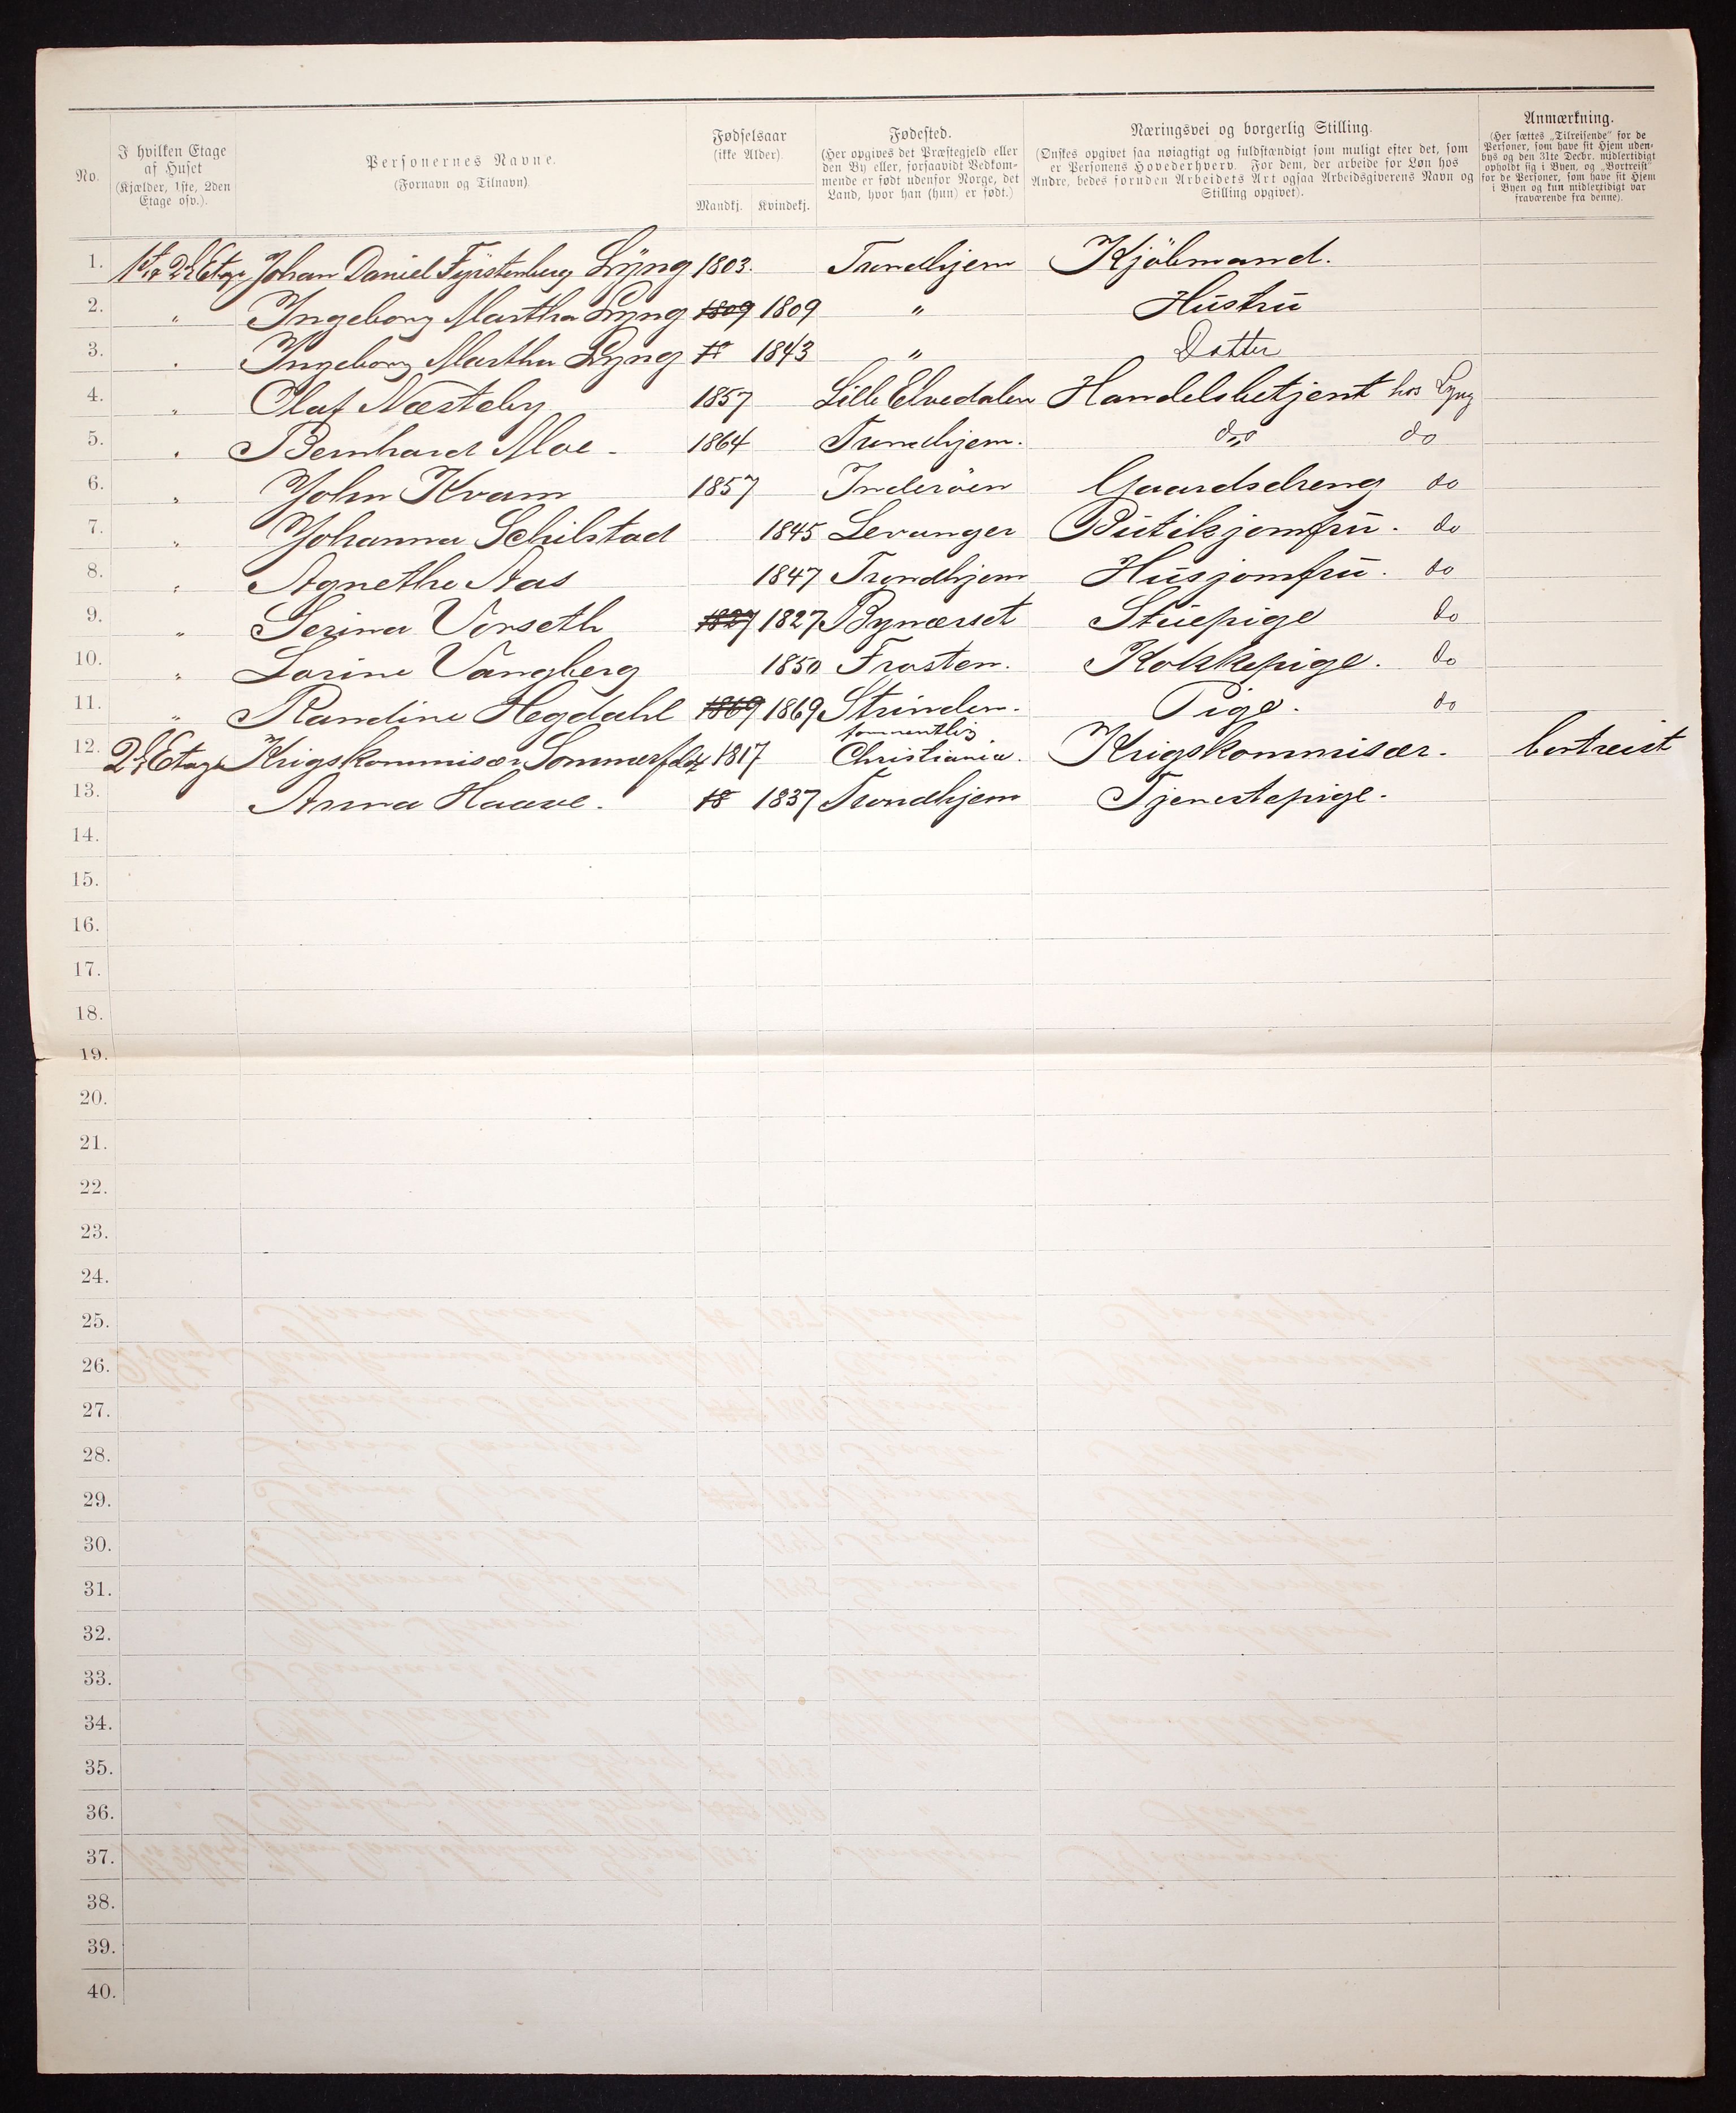 No.
I hvilken Etage af Huset (Kjælder, 1ste, 2den Etage osv.).
Personernes Navne. (Fornavn og Tilnavn).
Fødselsaar (ikke Alder)
Mandkj. Kvindekj.
Fødested. (Her opgives det Præstegjeld eller den By eller, forsaavidt Vedkommende er født udenfor Norge, det Land, hvor han (hun) er født.)
Næringsvei og borgerlig Stilling. (Ønskes opgivet saa nøiagtigt og fuldstændigt som muligt efter det, som er Personens Hovederhverv. For dem, der arbeide for Løn hos Andre, bedes foruden Arbeidets Art ogsaa Arbeidsgiverens Navn og Stilling opgivet).
Anmærkning. (Her sættes „Tilreisende" for de Personer, som have sit Hjem udenbys og den 31te Decbr. midlertidigt opholdt sig i Byen, og „Bortreist" for de Personer, som have sit Hjem i Byen og kun midlertidigt var fraværende fra denne).
1. 1ste 2d Etage Johan Daniel Fyrstenberg Lyng 1803. Trondhjem Kjöbmand.
2. " Ingeborg Martha Lyng 1809 1809 " Hustru
3. " Ingeborg Martha Lyng 18 1843 " Datter
4. " Olaf Næsteby 1857 Lille Elvedalen Handelsbetjent hos Lyng
5. " Bernhard Moe - 1864 Trondhjem. do do
6. " John Kvam 1857 Inderöen Gaardsdreng do
7. " Johanna Schilstad 1845 Levanger Butikjomfru. do
8. " Agnethe Aas 1847 Trondhjem Husjomfru. do
9. " Serina Vorseth 1827 1827 Bynæsset Stuepige do
10. " Lorine Vangberg 1850 Frosten. Kokkepige. do
11. " Randine Hegdahl 1869 1869 Strinden. Pige. do
12. 2d Etage Krigskommisær Sommerfeldt 1817 formentlig Christiania. Krigskommisær. bortreist
13. Anna Haave. 18 1837 Trondhjem Tjenestepige.
14.
15.
16.
17.
18.
19.
20.
21.
22.
23.
24.
25.
26.
27.
28.
29.
30.
31.
32.
33.
34.
35.
36.
37.
38.
39.
40.